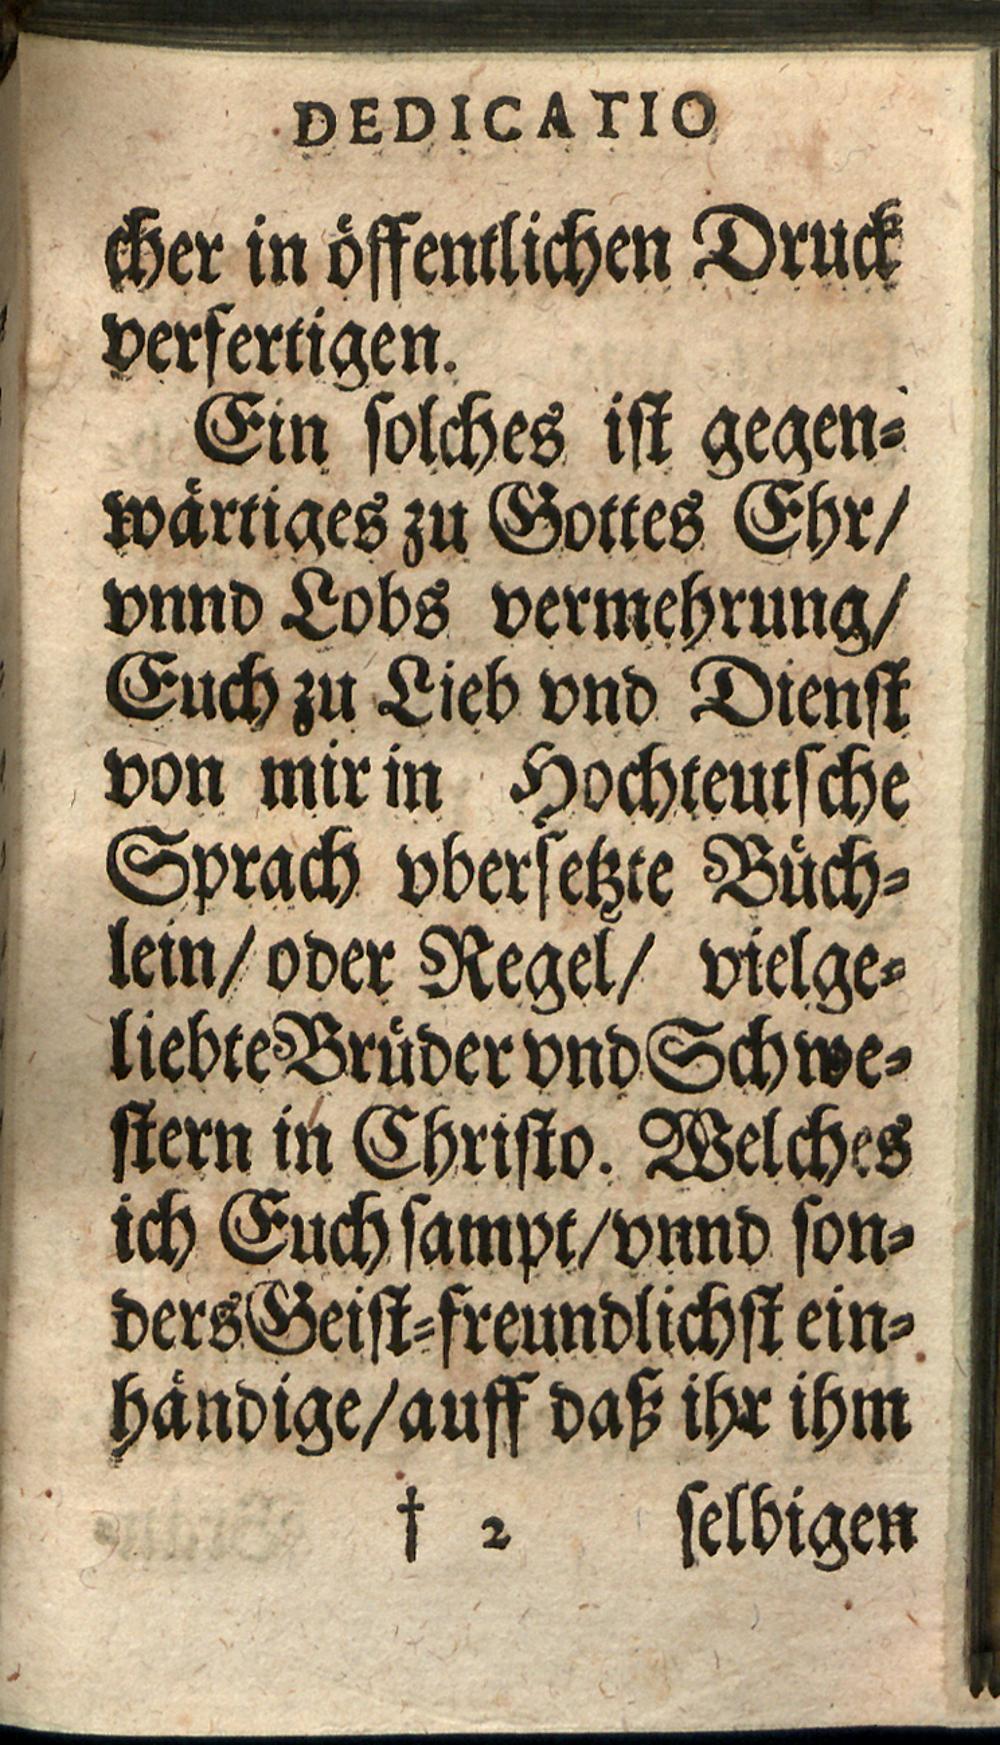 DEDICATIO
cher in öffentlichen Druck
verfertigen.
Ein solches ist gegen⸗
wärtiges zu Gottes Ehr/
vnnd Lobs vermehrung/
Euch zu Lieb vnd Dienst
von mir in Hochteutsche
Sprach vbersetzte Büch⸗
lein/ oder Regel/ vielge⸗
liebte Brüder vnd Schwe⸗
stern in Christo. Welches
ich Euch sampt/ vnnd son⸗
ders Geist⸗freundlichst ein⸗
händige/ auff daß ihr ihm
† 2 selbigen